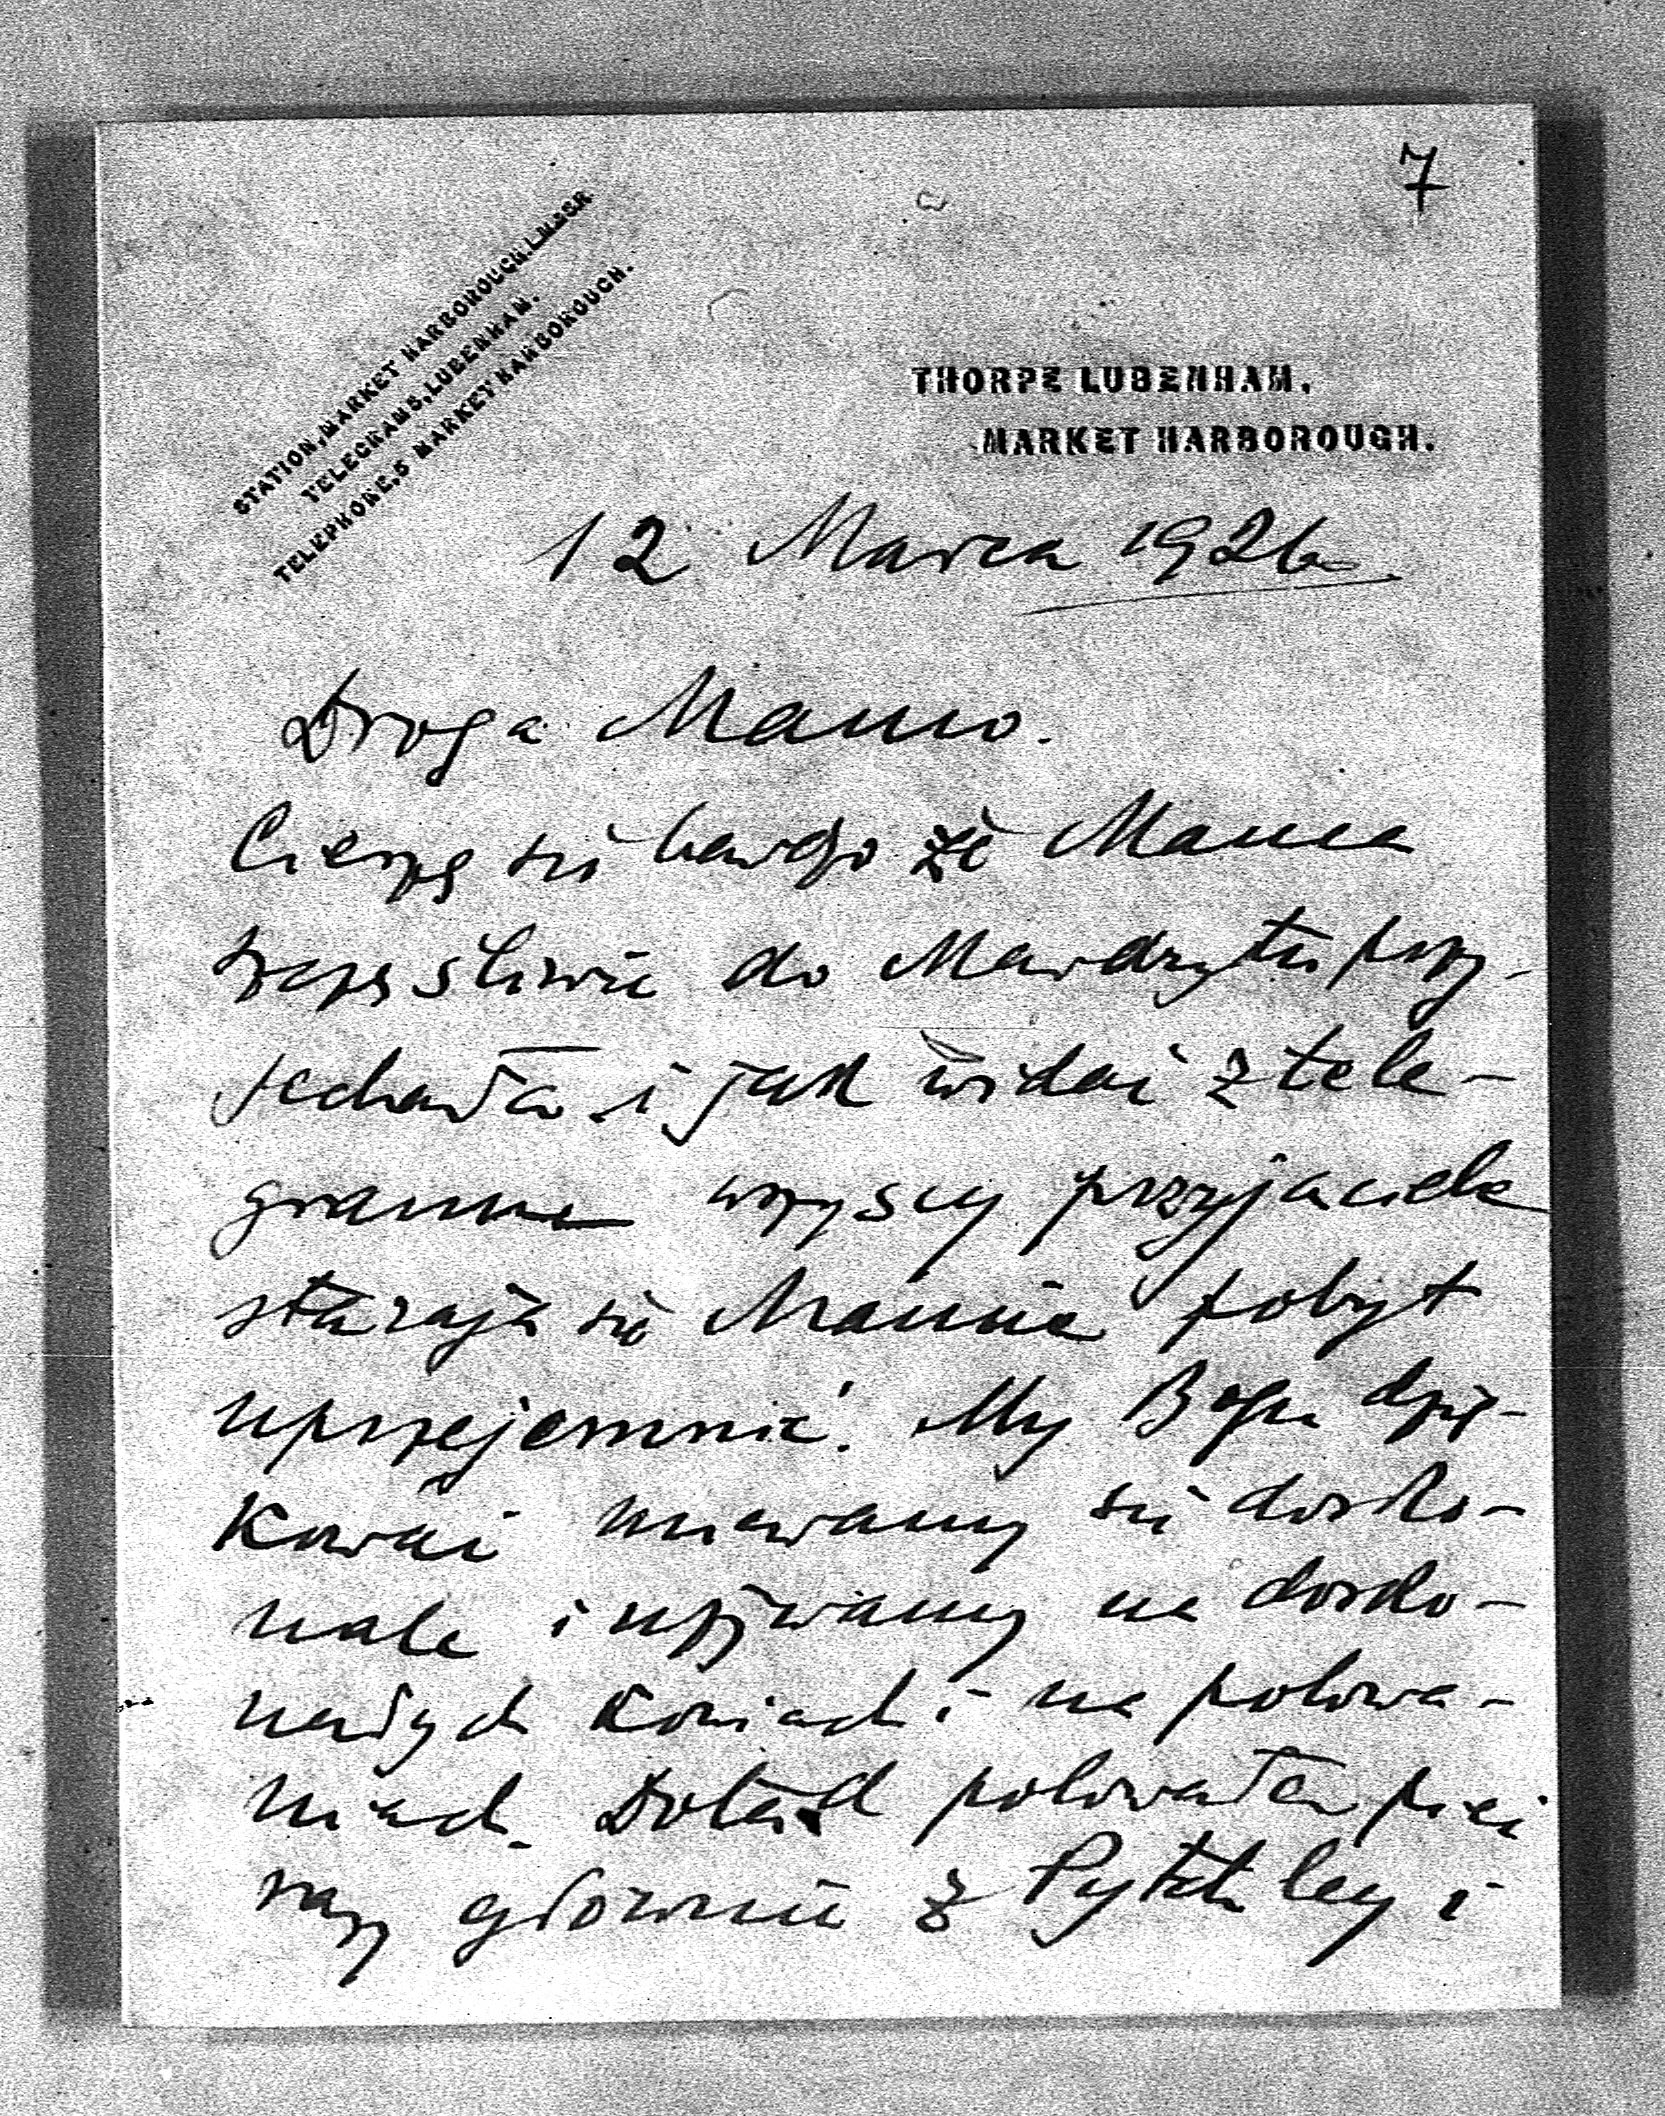 7
STATION, MARKET HARBOROUGH. L.M.&S.R.
TELEGRAMS, LUBENHAM.
TELEPHONE, 5 MARKET HARBOROUGH.
THORPE LUBENHAM,
MARKET HARBOROUGH.
12 Marca 1926
Droga Mamo.
Cieszę się bardzo że Mama
szczęśliwie do Madrytu przy-
jechała i jak widać z tele-
gramu wszyscy przyjaciele
starają się Mamie pobyt
uprzyjemnić. My Bogu dzię-
kować miewamy się dosko-
nale i używamy na dosko-
nałych koniach i na polowa-
niach. Dotąd polowałem pięć
razy głównie z Pytchley i